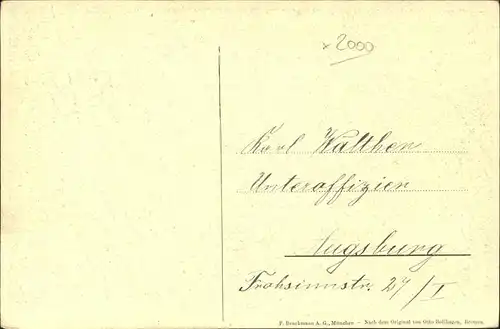 x 2000
Karl Walther
Unteroffizier
Augsburg
Frohsinnstr. 27/I
F. Bruckmann A. G., München – Nach dem Original von Otto Bollhagen, Bremen.